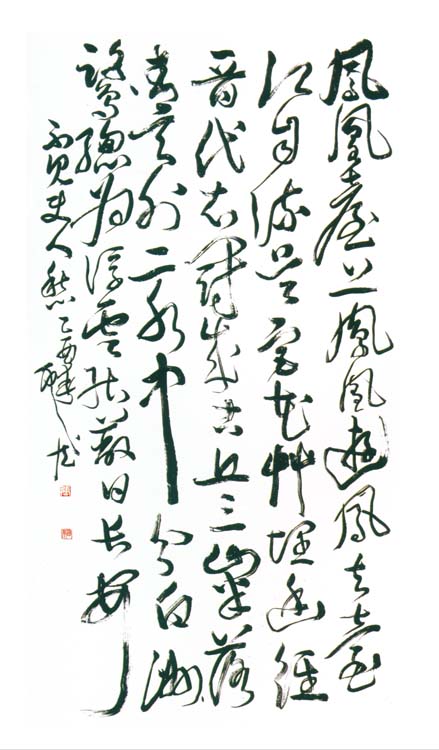 鳳凰臺上鳳凰遊鳳去臺
江自流吳宮花艸埋幽徑
晉代衣冠成古丘三山半落
青天外二水中分白洲
鷺總為浮雲能蔽日長安
不見使人愁乙酉